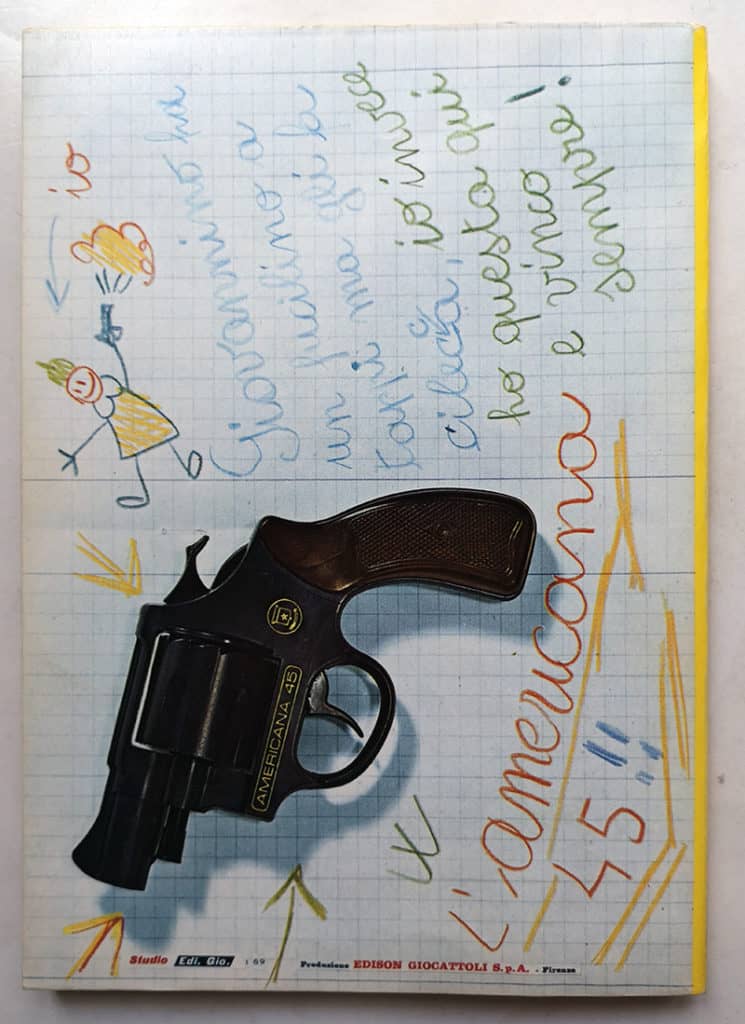 io
Giovannino ha
un fucilino a
tappi ma gli fa
cilecca, io invece
ho questa qui
e vinco
sempre!
AMERICANA 45
L'americana
45!!
Studio Edi. Gio. : 69
Produzione EDISON GIOCATTOLI S.p.A. - Firenze